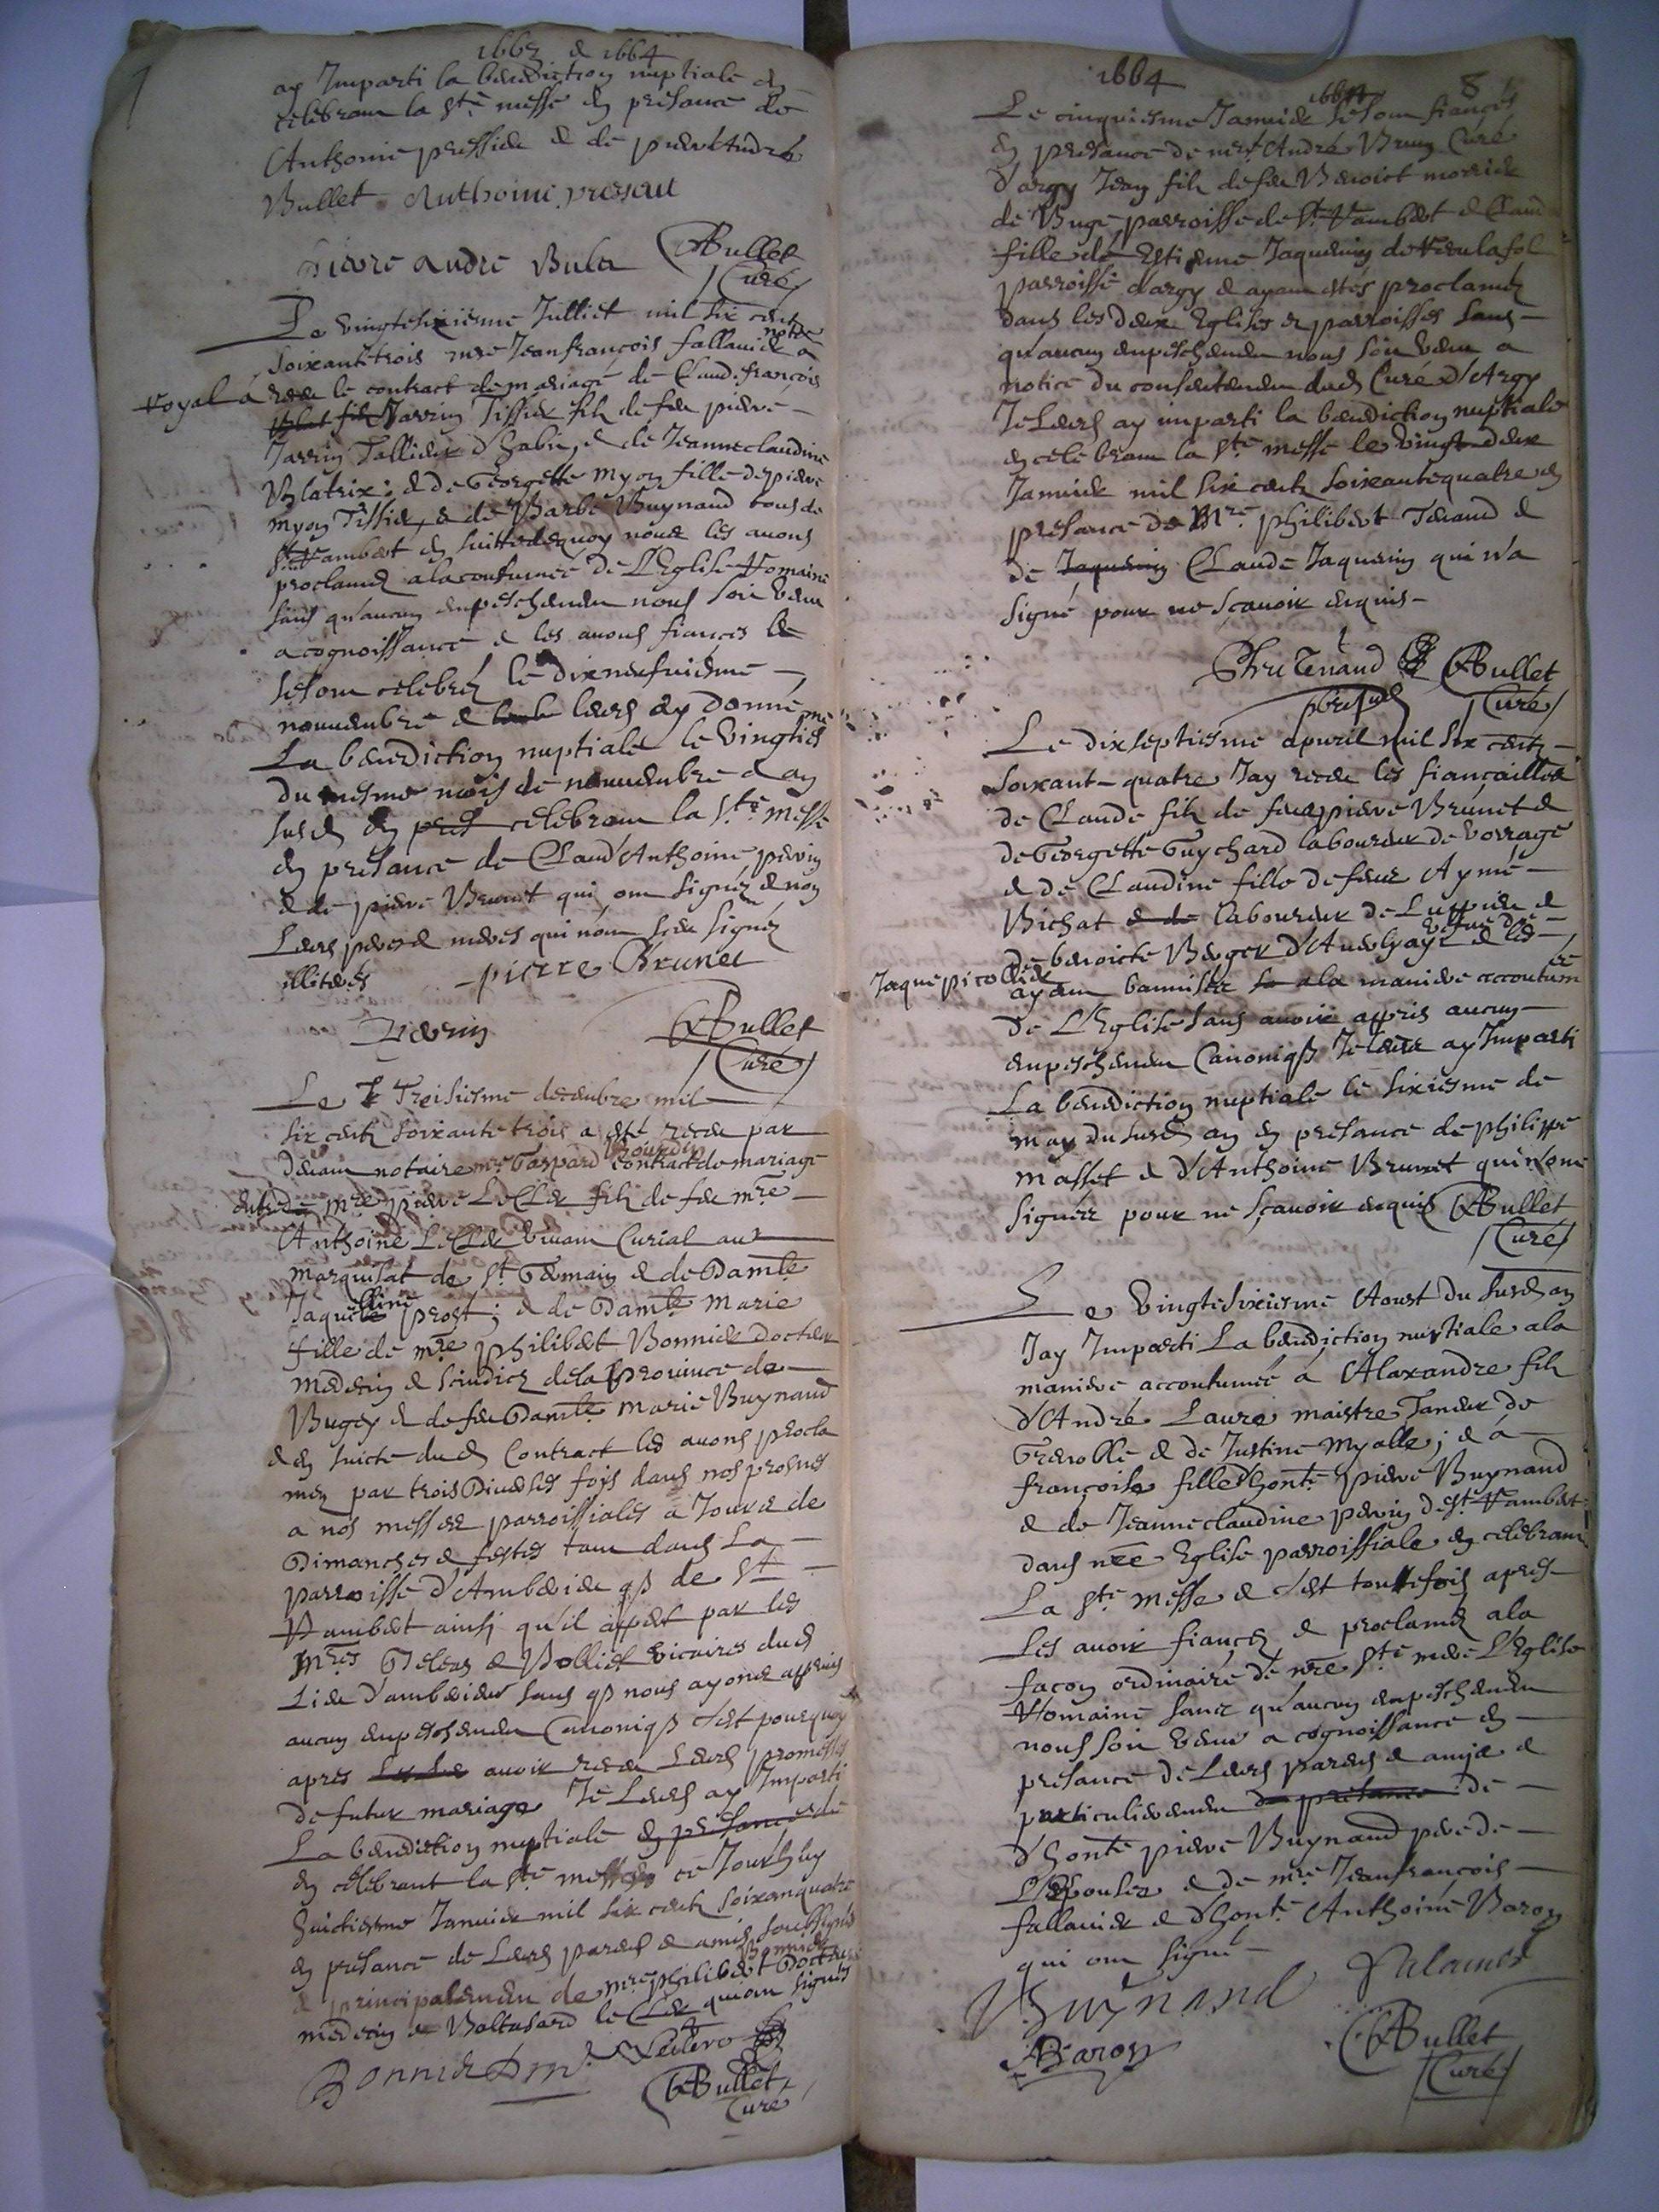 1663 & 1664
ay Imparti la benediction nuptiale en
celebrant la Ste messe en presance de
Anthoine pressieu & de pierre André
Bullet Anthoine
Pierre andre Bulet Bullet
Curé
Le vingtesixiesme Julliet mil six cent
soixantetrois mre Jeanfrancois fallavier notre
royal a receu le contract de mariage de Claudefrancois
Jarrin Tissier filz de feu pierre
Jarrin Tallieur & de Jeanneclaudine
& de Georgette myon fille de pierre
myon Tissier, & de Barbe Buynand tous de
St Rambert en suitte dequoy nous les avons
proclamez a la coutumée de L'Eglise Romaine
sans qu'aucun enpeschement nous soit venu
a cognoissance & les avons fiancés
celebréz le dixneufuiesme
nouuembre & leurs ay donné
La benediction nuptiale le vingtiesme
du mesme mois de nouuembre & an
susd en celebrant la Ste messe
en presance de Claud'Anthoine perrin
& de pierre Brunet qui ont signéz & non
Leurs peres & meres qui n'ont sceu signéz
illiteres pierre Brunet
Perrin Bullet
Curé
Le Treisiesme decembre mil
six centz soixante trois a esté receu par
devant notaire mre Gaspard contract de mariage
entre mre pierre LeClerc filz de feu mre
Anthoine LeClerc Curial au
marquisat de St Germain & de Damle
Jaquelline prost; & de Damle Marie
fille de mre philibert Bonnier docteur
medecin & scindicz de la province de
Bugey & de feu Damle marie Buynand
& en suicte dud Contract les avons procla
mez par trois Diverses foys dans nos prosnes
a nos messes parroissiales a Jours de
Dimanches & festes tant dans La
parroisse d'Amberieu que de St
Rambert ainsi qu'il appert par les
mres & Volliet vicaires dud
Lieu d'amberieu sans que nous ayons appris
aucun enpeschement Canonique c'est pourquoy
apres avoir receu Leurs promesses
de futur mariage Je Leurs ay Imparti
La benediction nuptiale en presance de
en célebrant la Ste messe ce Jourdhuy
huictiesme Januier mil six centz soixanquatre
en presance de Leurs parens & amis soubsignés
& principalement de mre philibert Bonnier Docteur
medecin & Baltasard le Clerc qui ont signés
Bonnier D m. Leclerc
Bullet
Curé
1664 8
1664
Le cinquiesme Januier se sont fiancés
en presance de mre André Brun Curé
d'argy Jean filz de feu Benoict morrier
de Buge parroisse de St Rambert & Claud
fille de Estienne Jaquemin de
parroisse d'argy & ayant estés proclaméz
dans les deux Eglises & parroisses sans
qu'aucun enpeschement nous soit venu a
notice du consentement dud Curé d'Argy
Je Leurs ay imparti la benediction nuptiale
en celebrant la Ste messe le vingt deux
Januier mil six centz soixantequatre en
presance de Mre philibert Tenand &
de Jaquemin Claude Jaquemin qui n'a
signé pour ne scavoir enquis
Tenand Bullet
Curé
Le dixseptiesme apuril mil six centz
soixant-quatre Jay receu les fiancailles
de Claude filz de feu pierre Brunet &
de Georgette Guychard laboureur de vorrage
& de Claudine fille de feu Aymé
Bichat & de laboureur de Luppieu &
de benoicte Berger d' vefue de
Jaque picollier & les
ayant bannisez a la maniere accoutumée
de L'Eglise sans avoir appris aucun
enpeschement Canonique Je leurs ay Imparti
La benediction nuptiale le sixiesme de
may du susd an en presance de philippe
masset & d'Anthoine Brunet qui n'ont
signéz pour ne scavoir enquis Bullet
Curé
Le vingtesixiesme Aoust du susd an
Jay Imparti La benediction nuptiale a la
maniere accoutumée à Alaxandre filz
d'André Laure maistre Taneur de
Grenoble & de Justine myalle; & à
francoise fille d'honte pierre Buynand
& de Jeanneclaudine perrin de St Rambert
dans nre Eglise parroissiale en celebrant
La Ste messe & c'est touttefois apres
Les avoir fiancez & proclaméz a la
facon ordinaire de nre Ste mere L'Eglise
Romaine sans qu'aucun enpeschement
nous soit venu a cognoissance en
presance de Leurs parens & amis &
particulierement de presance de
d'honte pierre Buynand pere de
L'Espouse & de mre Jeanfrancois
fallavier & d'honte Anthoine Baron
qui ont signé
Buynand
Baron Bullet
Curé